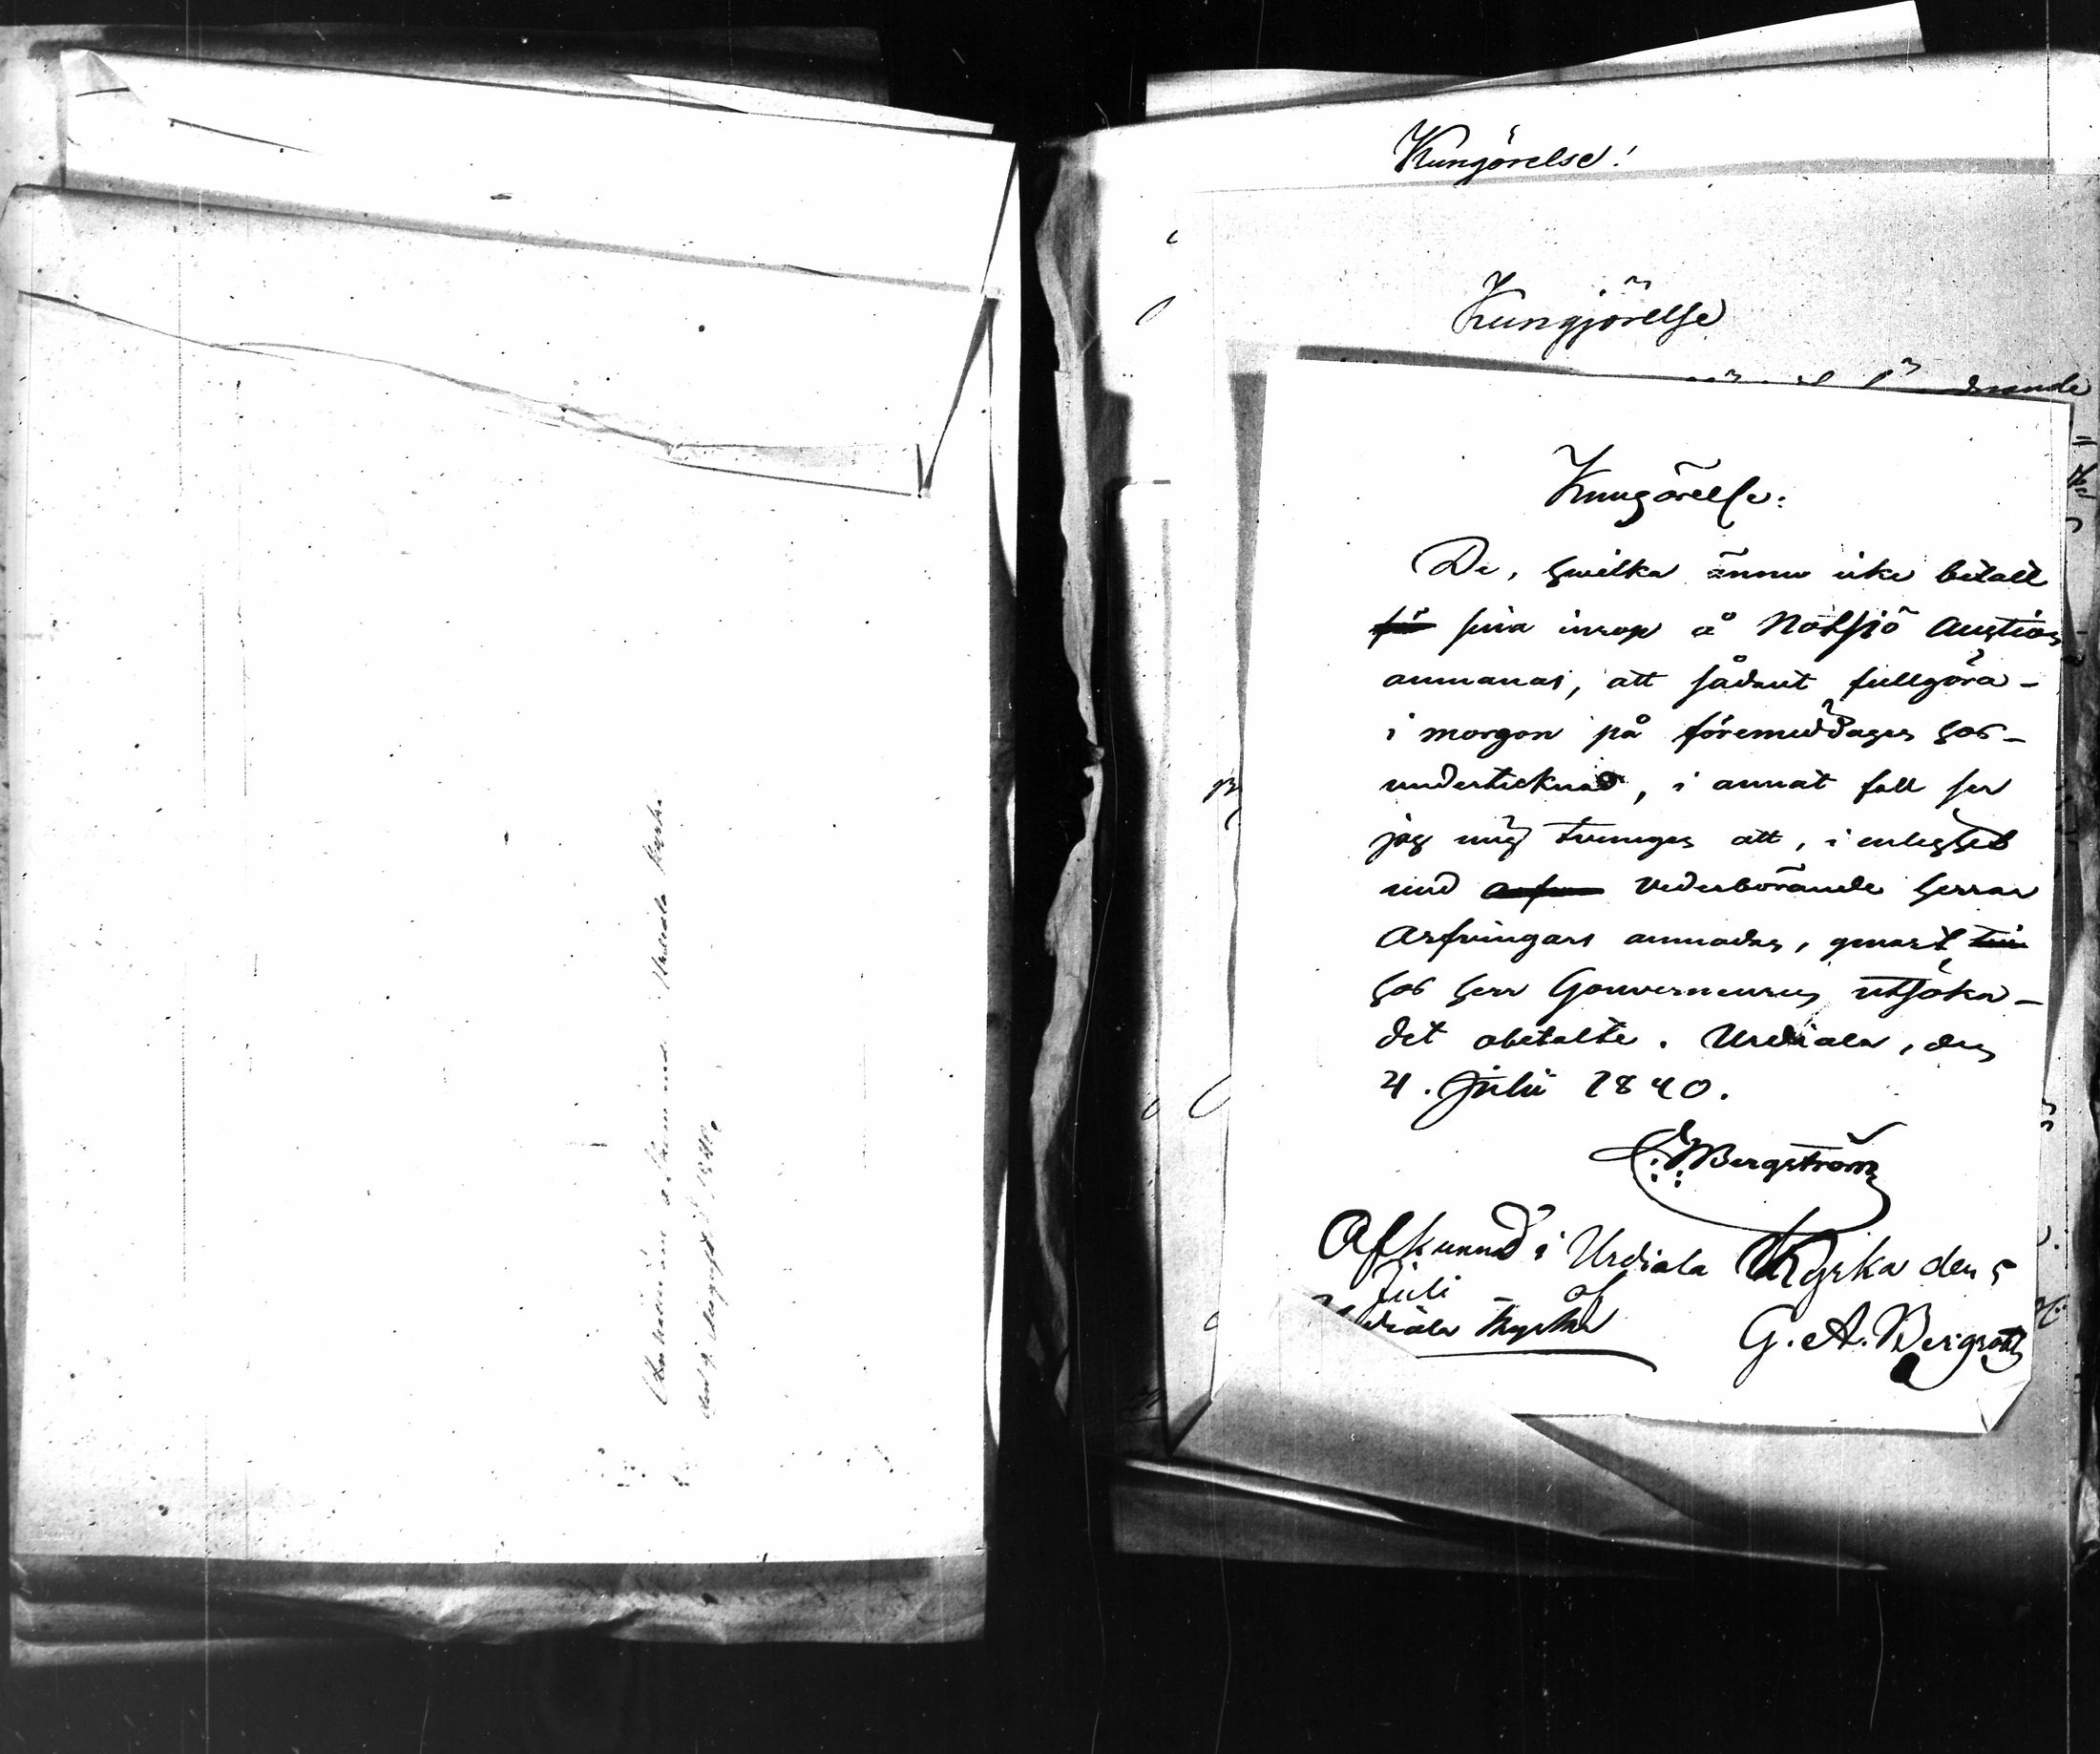 Kungörelse!
Kungjörelse
Kungörelse:
De, hwilka ännu icke betalt
sina inrop å Notsjö Auction
anmanas, att sådant fullgöra
i morgon på föremiddagen hos
undertecknad, i annat fall ser
jag mig tvungen att, i enlighet
med vederbörande herrar
Arfvingars anmodan, genast
hos herr Gouverneuren utsöka
det obetalte. Urdiala, den
4. Juli 1840.
Bergström
Afkunnad i Urdiala Kyrka den 5
Juli af
Kyrka G. A. Bergroth
Urdiala Kyrka
den 9 Augusti 1840.